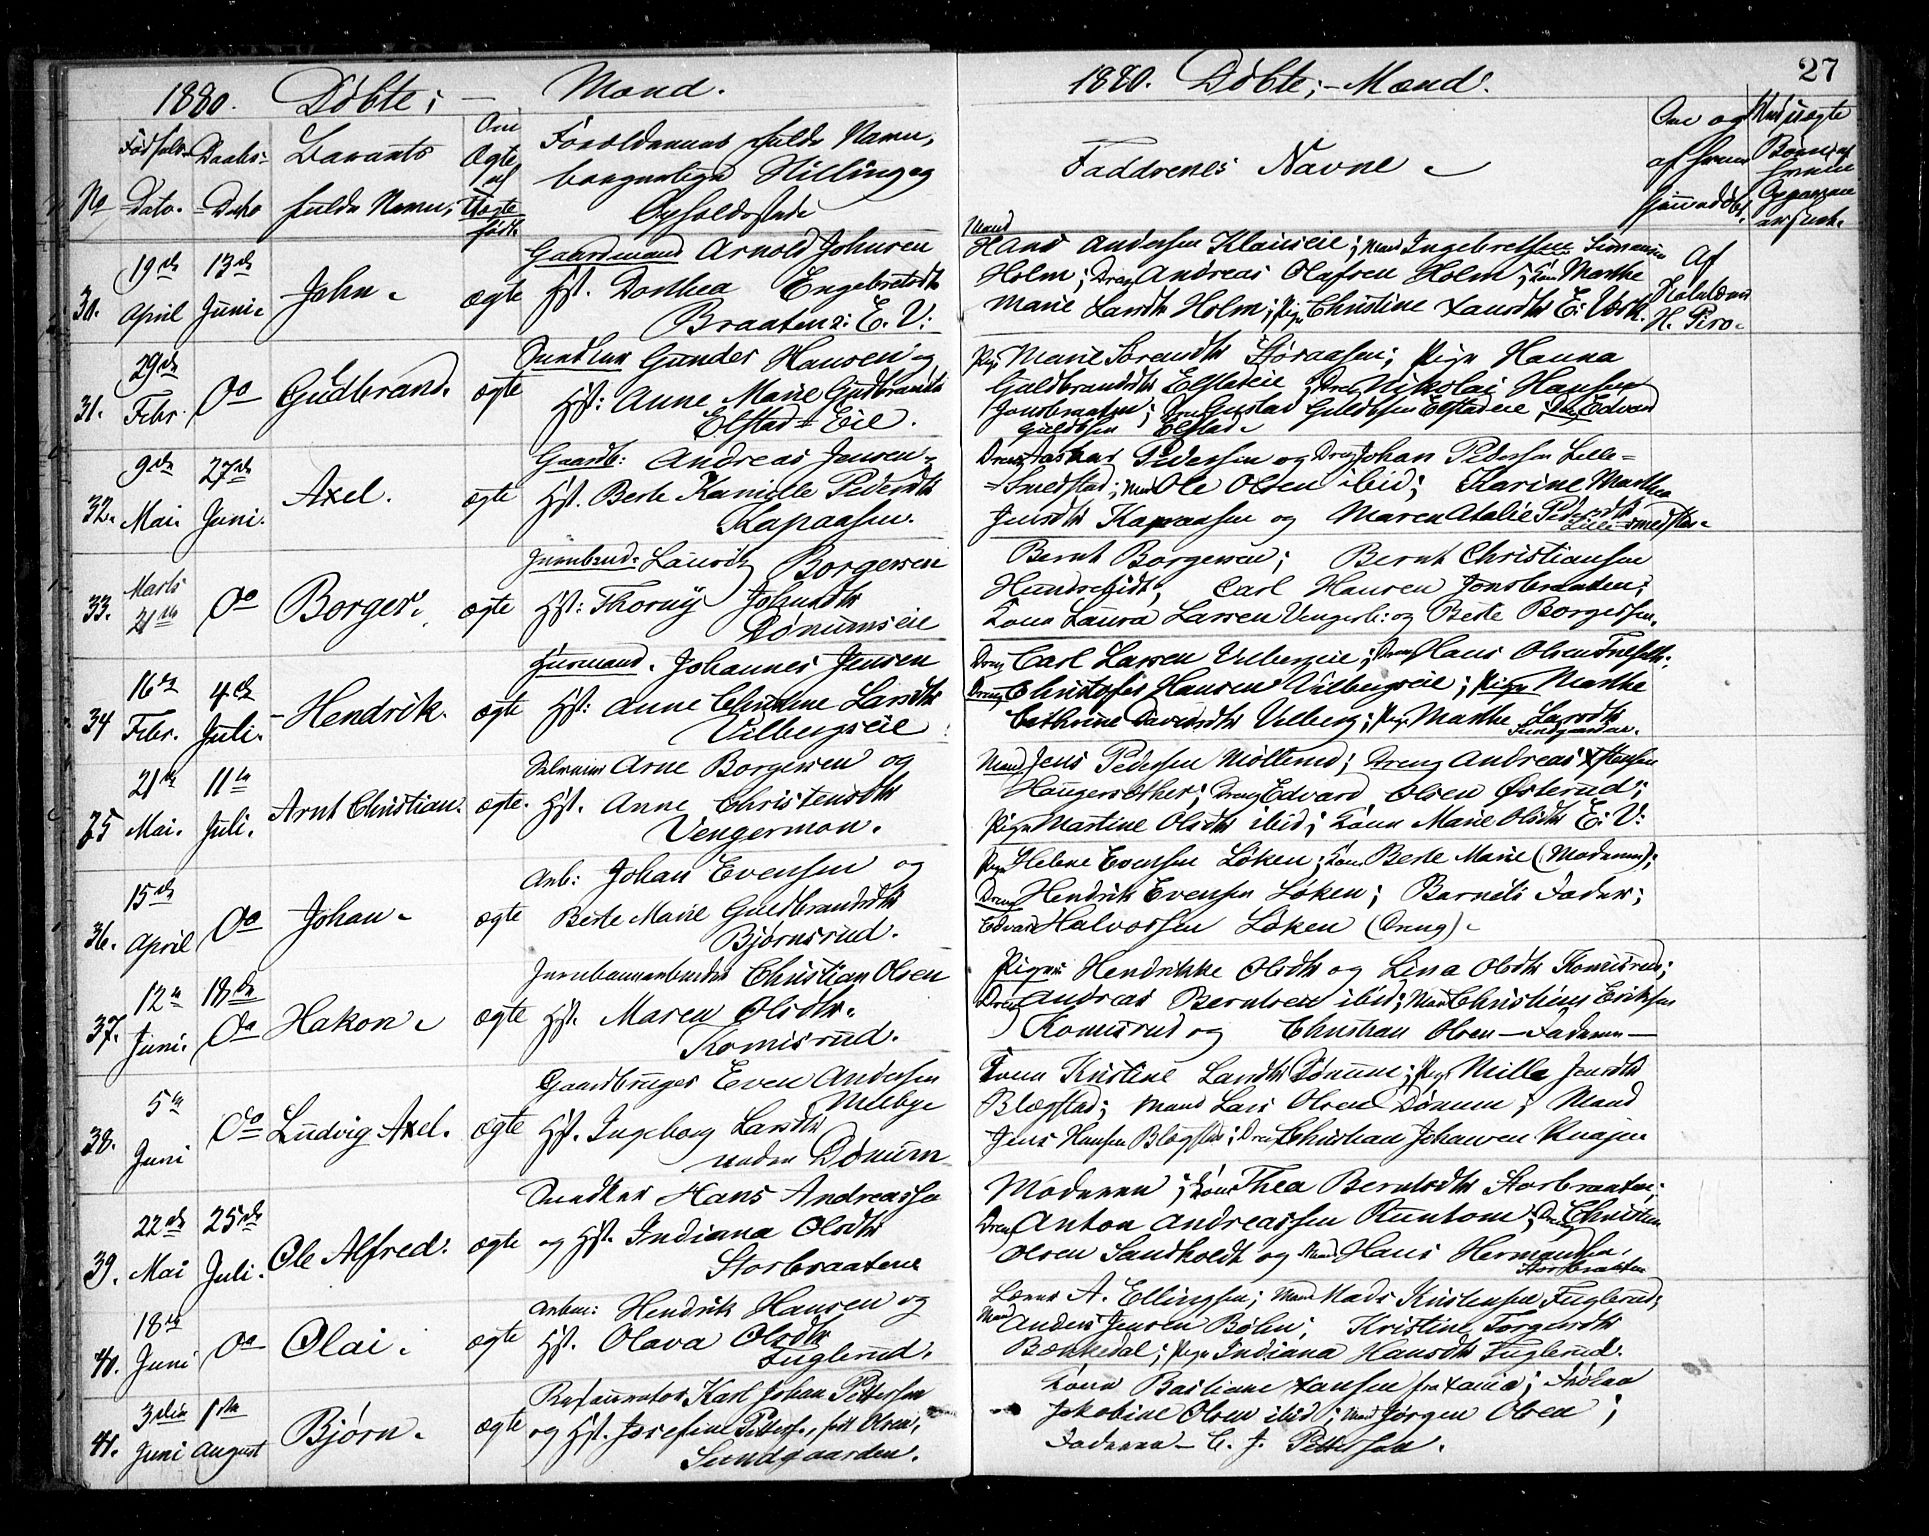 1880. Døbte; - Mænd.
Fødsels- Daabs-
No Dato. Dato
Barnets
fulde Navn,
Om Ægte el. Uægte født.
Forældrenes fulde Navn,
borgerlige Stilling og
Opholdssted
30. 19de April 13de Juni. John. ægte
Gaardmand Arnold Johnsen
Hst. Dorthea Engebretsdtr
Braaten i E. V:
31. 29de Febr. Do Gudbrand. ægte
Gunder Hansen og
Hst: Anne Marie Gudbrandsdtr
Elstad Eie.
32. 9de Mai. 27de Juni. Axel. ægte
Gaardb: Andreas Jensen
Hst. Berte Kamille Pedersdtr
Kapaasen.
33. Marts 21de Do Borger. ægte
Laurits Borgersen
Hst: Thorny Johnsdtr
Dønumseie
34 16de Febr. 4de Juli. Hendrik. ægte
Husmand. Johannes Jensen
Hst: Anne Christine Larsdtr
Vilbergseie
35 21de Mai. 11te Juli. Arnt Christian. ægte.
Arne Borgersen og
Hst. Anne Christensdtr
Vengermoen.
36. 15de April Do Johan. ægte
Arb: Johan Evensen og
Berte Marie Guldbrandsdtr
Bjørnsrud.
37. 12te Juni. 18de Do Hakon. ægte
Jernbanearbeider Christian Olsen
Hst. Maren Olsdtr.
Komisrud.
38. 5te Juni Do Ludvig Axel. ægte
Gaardbruger Even Andersen
Melbye
Hst. Ingeborg Larsdtr
Dønum
39. 22de Mai 25de Juli. Ole Alfred. ægte
Hans Andreassen
og Hst. Indiana Olsdtr
Storbraatene
40. 18de Juni Do Olai. ægte
Arben: Hendrik Hansen og
Hst. Olava Olsdtr
Fuglerud.
41. 3die Juni 1ste August Bjørn. ægte
Restauratør Karl Johan Pettersen
og Hst. Josefine Petters., født Olsen,
Sundgaarden.
27
1880. Døbte; - Mænd.
Faddrenes Navne
Om og
af hvem
hjemmedøbt.
Ved uægte
Børn, af
hvem
Opgaven
er skeet.
Mand
Hans Andersen Klauseie; Mand Ingebret Simensen
Holm; Dreng Andreas Olafsen Holm; Kone Marthe
Marie Larsdtr Holm; Pige Christine Larsdtr E. Værk.
Af
H. Bro.
Pige Marie Sørensdtr Støraasen; Pige Hanna
Guldbrandsdtr Elstadeie; Dreng Nikolai Hansen
Jonsbraaten; Dreng Gustav Guldbsen Elstadeie; Dreng Edvard
Guldbsen Elstad.
Dreng Aaskar Pedersen og Dreng Johan Pedersen Lille-
Smedstad; Mand Ole Olsen ibid; Karine Marthea
Jensdtr Kapaasen og Maren Atalie Pedersdtr
Lillesmedstad.
Bernt Borgersen; Bernt Christiansen
Carl Hansen Jonsbraaten;
Kone Laura Larsen og Berte Borgersen.
Dreng Carl Larsen Vilbergeie; Dreng Hans Olsen
Dreng Christofer Hansen Vilbergseie; Pige Marthe
Cathrine Vilberg; Pige Marthe Larsdtr
Sundgaarden.
Mand Jens Pedersen Møllerud; Dreng Andreas
Haugersether; Dreng Edvard Olsen Østerud;
Pige Martine Olsdtr ibid; Kone Marie Olsdtr E. V:
Pige Helene Evensen Løken; Kone Berte Marie (Moderen);
Dreng Hendrik Evensen Løken; Barnets Fader;
Edvard Halvorsen Løken (Dreng).
Pigen Hendrikke Olsdtr og Lina Olsdtr Komisrud;
Dreng Andreas Berntsen ibid; Mand Christian Eriksen
Komisrud og Christian Olsen - Faderen -
Kone Kristine Larsdtr Dønum; Pige Mille Jensdtr
Blegstad; Mand Lars Olsen Dønum; Mand
Jens Hansen Blegstad; Dreng Christian Johansen
Moderen; Kone Thea Berntsdtr Storbraaten;
Dreng Anton Andreassen Runtom; Dreng Christian
Olsen Sandholdt og Mand Hans Hermansen,
Storbraaten
Lærer A. Ellingsen; Mand Mads Kristensen Fuglerud;
Mand Anders Jensen Bøhn; Kristine Torgersdtr
Bækkedal; Pige Indiana Hansdtr Fuglerud.
Kone Bastiane Hansen fra Xania; Frøken
Jakobine Olsen ibid; Mand Jørgen Olsen;
Faderen - C. J. Pettersen.